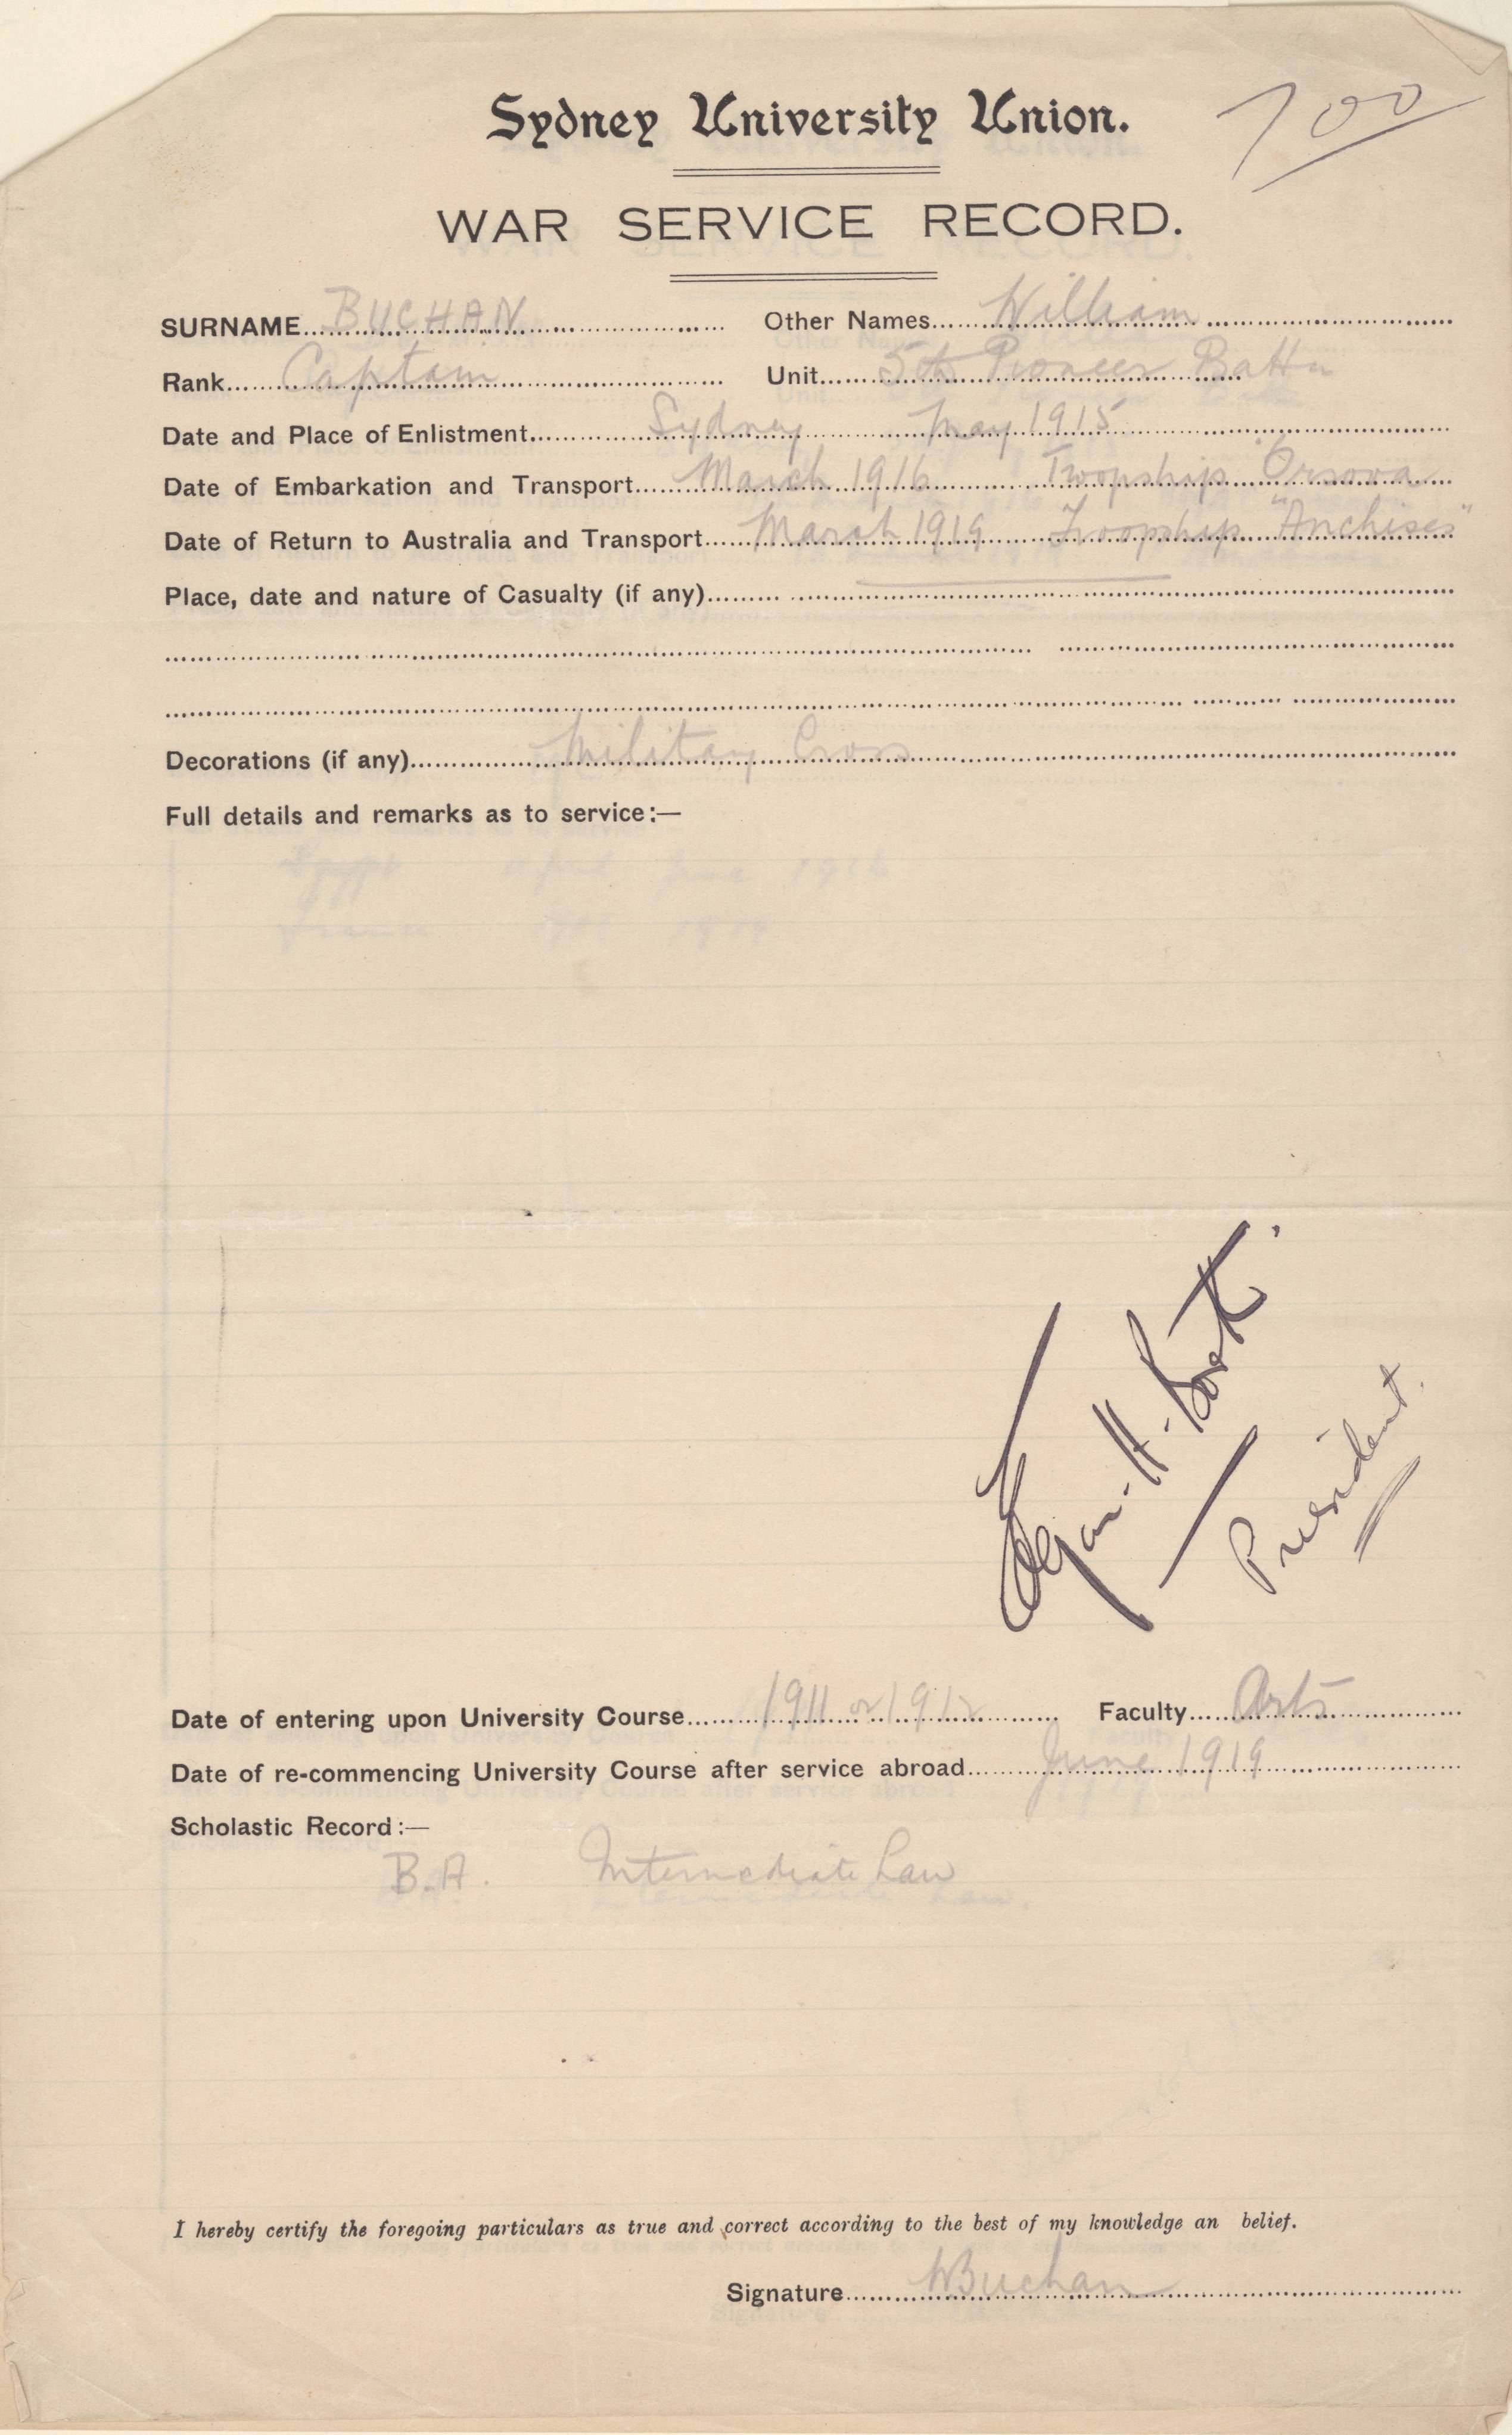 Sydney University Union.
700
WAR SERVICE RECORD.
SURNAME BUCHAN Other Names William
Rank Captain Unit 5th Pioneer Battn
Date and Place of Enlistment Sydney May 1915
Date of Embarkation and Transport March 1916 Troopship "Orsova
Date of Return to Australia and Transport March 1919 Troopship "Anchises"
Place, date and nature of Casualty (if any)
Decorations (if any) Military Cross
Full details and remarks as to service:—
Egypt April June 1916
France
H.
President.
Date of entering upon University Course 1911 or 1912 Faculty Arts
Date of re-commencing University Course after service abroad June 1919
Scholastic Record:—
B.A. Intermediate Law
I hereby certify the foregoing particulars as true and correct according to the best of my knowledge an belief.
Signature WBuchan